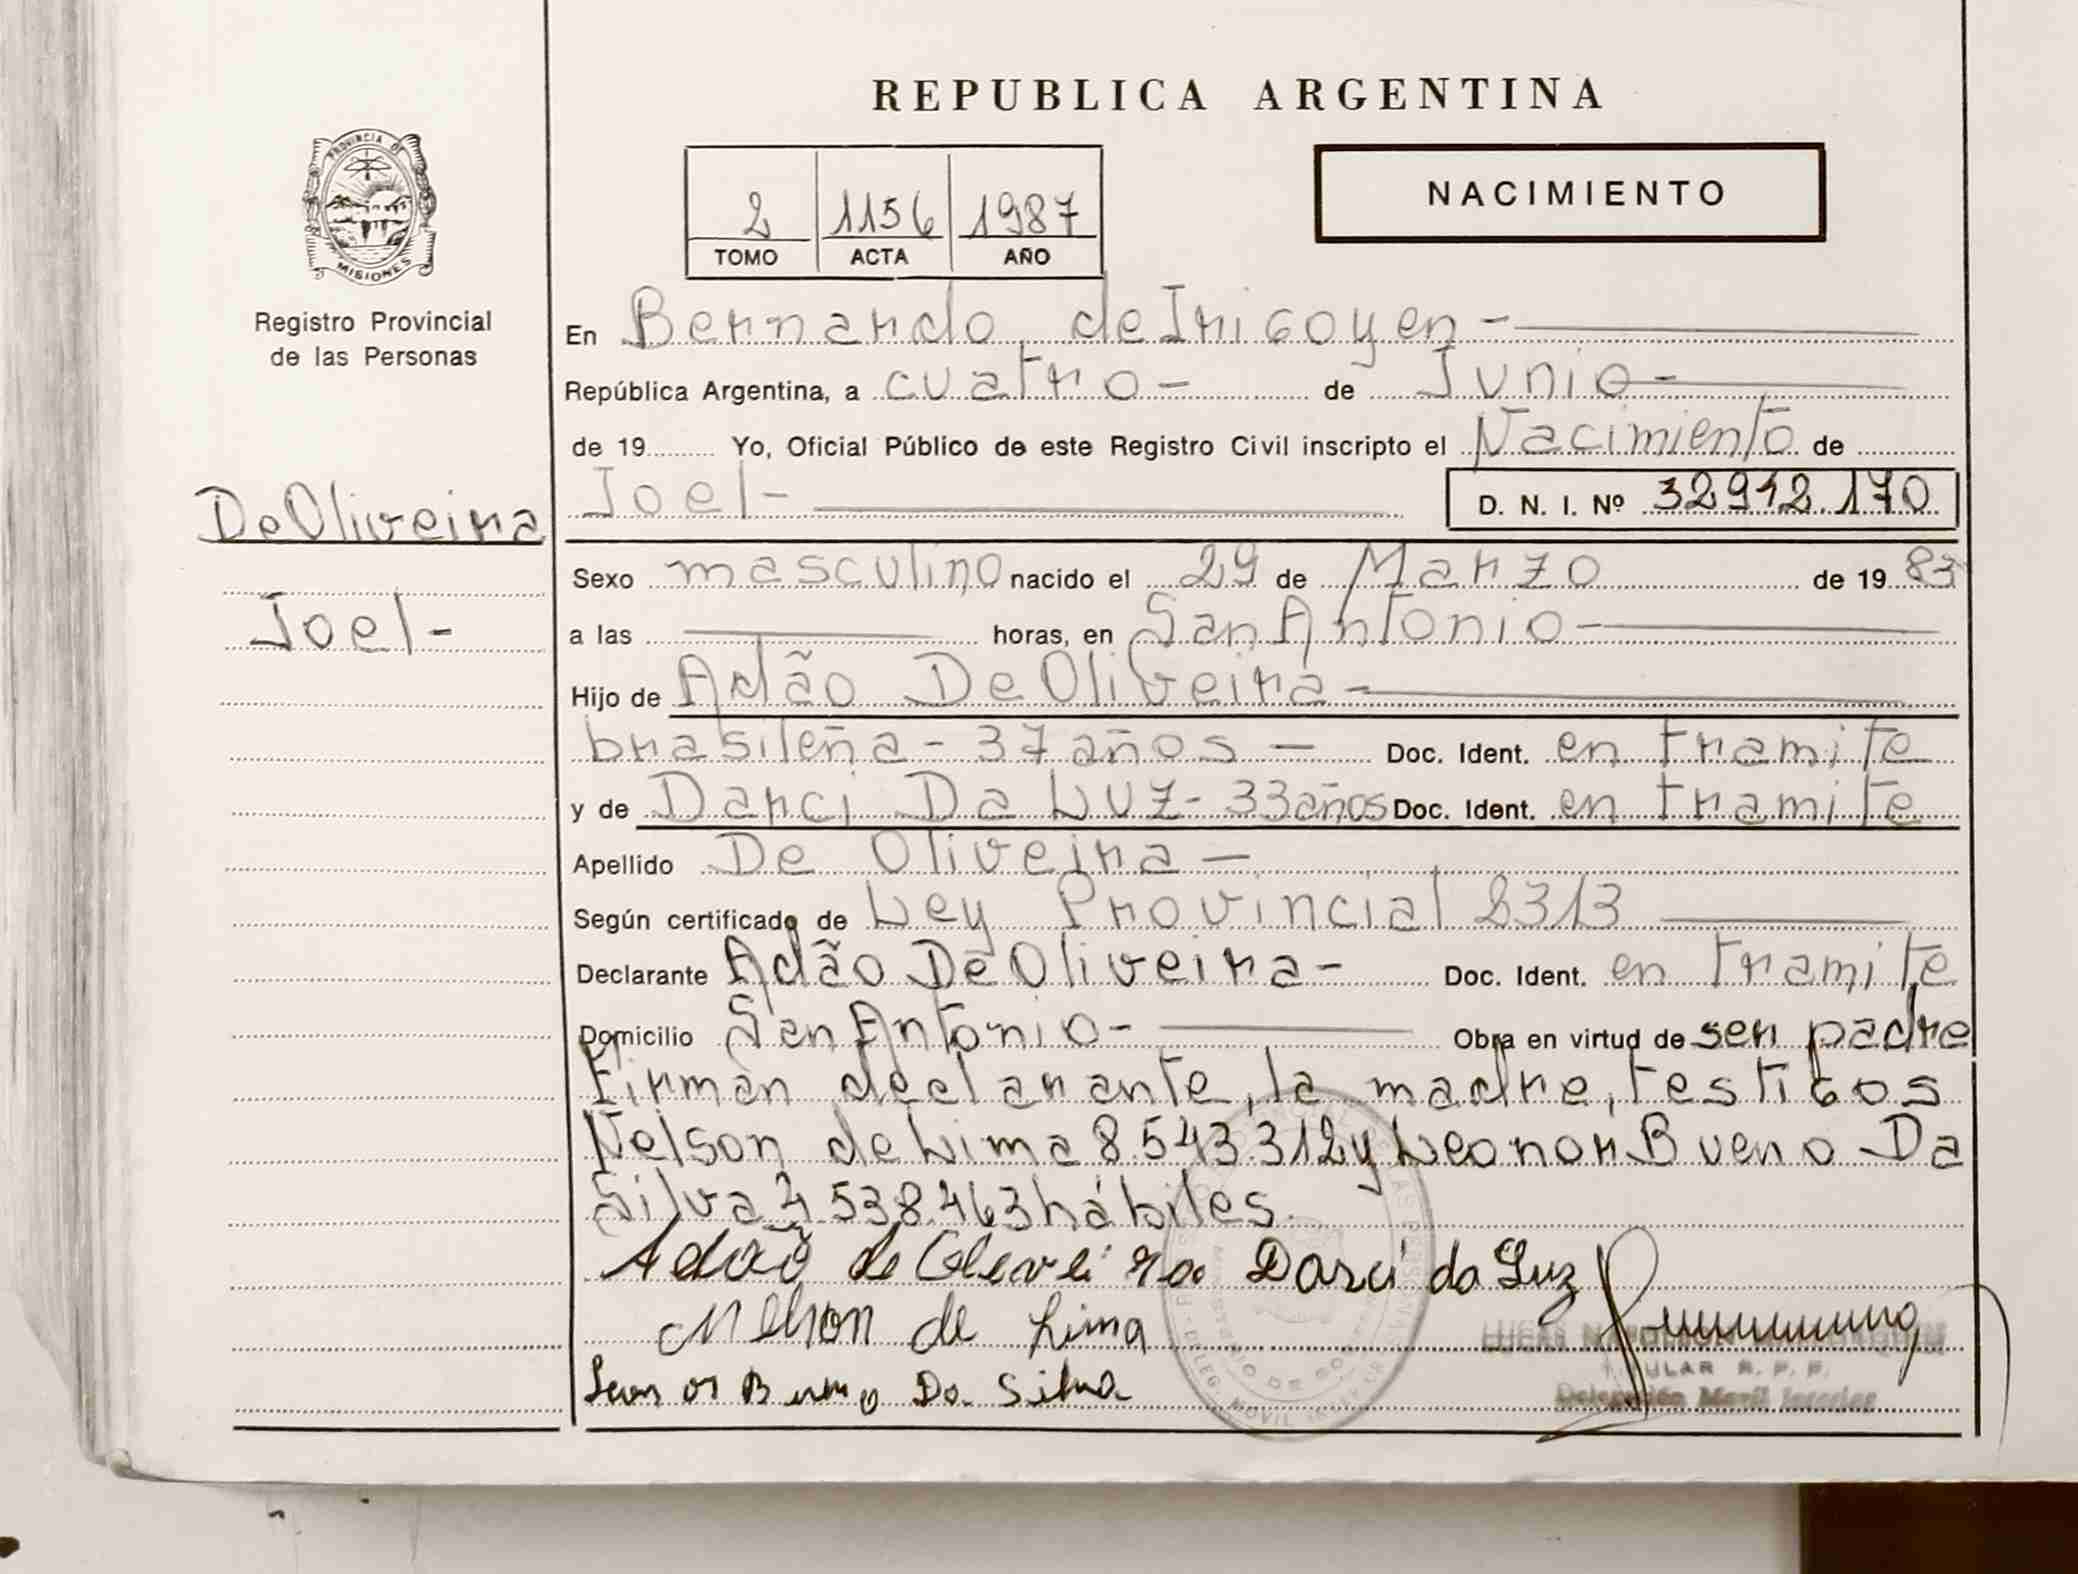 REPUBLICA ARGENTINA
PROVINCIA DE
MISIONES
Registro Provincial
de las Personas
2 1156 1987
TOMO ACTA AÑO
NACIMIENTO
En Bernardo de Irigoyen -
República Argentina, a cuatro - de Junio -
de 19 Yo, Oficial Público de este Registro Civil inscripto el Nacimiento de
Joel -
D. N. I. Nº 32912.170
De Oliveira
Joel -
Sexo masculino nacido el 29 de Marzo de 19 83
a las horas, en San Antonio -
Hijo de Adão De Oliveira -
brasileña - 37 años - Doc. Ident. en tramite
y de Darci Da Luz - 33 años Doc. Ident. en tramite
Apellido De Oliveira -
Según certificado de Ley Provincial 2313
Declarante Adão De Oliveira - Doc. Ident. en tramite
Domicilio San Antonio - Obra en virtud de ser padre
Firman declarante, la madre, testigos
Nelson de Lima 8.543.312 y Leonor Bueno Da
Silva 4.538.463 hábiles.
Adão de Oliveira Darci da Luz
Nelson de Lima
Leonor Bueno Da Silva
TITULAR R. P. P.
Delegación Movil